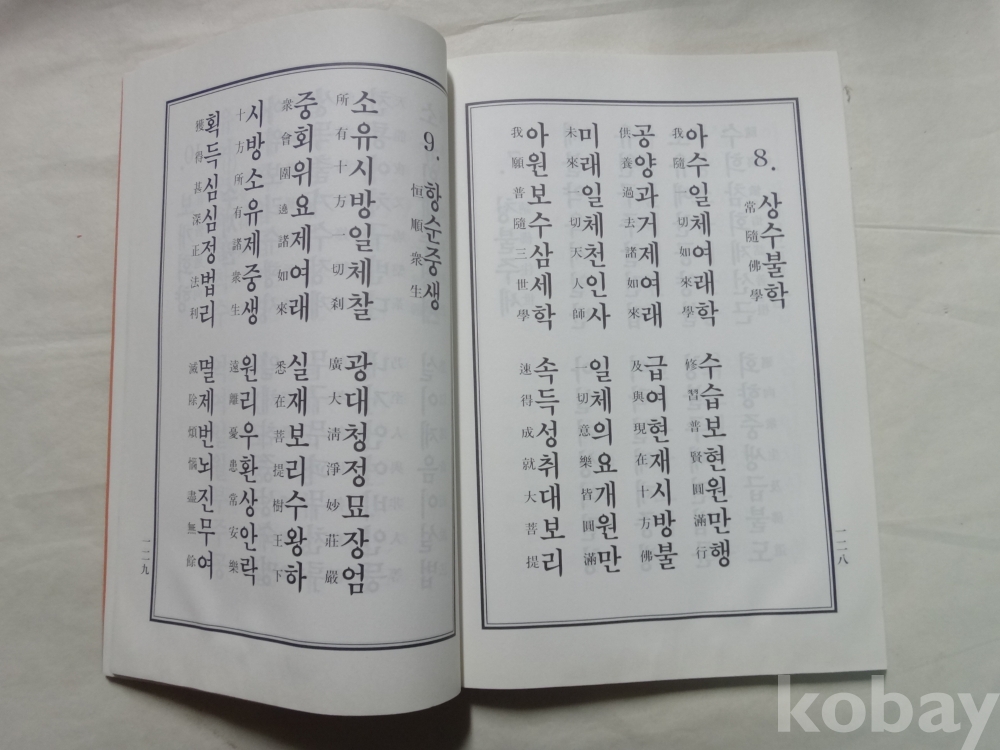 8. 상수불학
常隨佛學
아수일체여래학 수습보현원만행
我隨一切如來學 修習普賢圓滿行
공양과거제여래 급여현재시방불
供養過去諸如來 及與現在十方佛
미래일체천인사 일체의요개원만
未來一切天人師 一切意樂皆圓滿
아원보수삼세학 속득성취대보리
我願普隨三世學 速得成就大菩提
一二八
9. 항순중생
恒順衆生
소유시방일체찰 광대청정묘장엄
所有十方一切刹 廣大淸淨妙莊嚴
중회위요제여래 실재보리수왕하
衆會圍遶諸如來 悉在菩提樹王下
시방소유제중생 원리우환상안락
十方所有諸衆生 遠離憂患常安樂
획득심심정법리 멸제번뇌진무여
獲得甚深正法利 滅除煩惱盡無餘
一二九
kobay